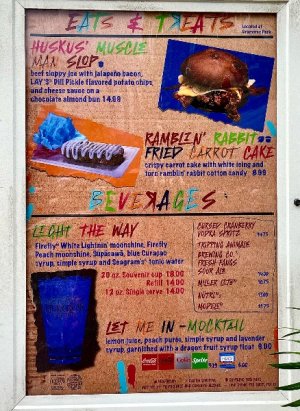 EATS & TREATS
Located at
HUSKUS' MUSCLE
MAN SLOP
beef sloppy joe with jalapeño bacon,
LAY'S® Dill Pickle flavored potato chips,
and cheese sauce on a
chocolate almond bun 14.99
RAMBLIN' RABBIT
FRIED CARROT CAKE
crispy carrot cake with white icing and
toro ramblin' rabbit cotton candy 8.99
BEVERAGES
LIGHT THE WAY
Firefly® White Lightnin moonshine, Firefly
Peach moonshine, Supasawā, blue Curaçao
syrup, simple syrup and Seagram's® tonic water
20 oz. Souvenir cup 18.00
Refill 14.00
12 oz. Single serve 14.00
CURSED CRANBERRY
VODKA SPRITZ
TRIPPING ANIMALS
BREWING CO.®
FRESH-FANGS
SOUR ALE
MILLER LITE®
NÜTRL®
MODELO®
LET ME IN -MOCKTAIL
lemon juice, peach puree, simple syrup and lavender
syrup, garnished with a dragon fruit syrup float 6.00
Coca-Cola
Sprite